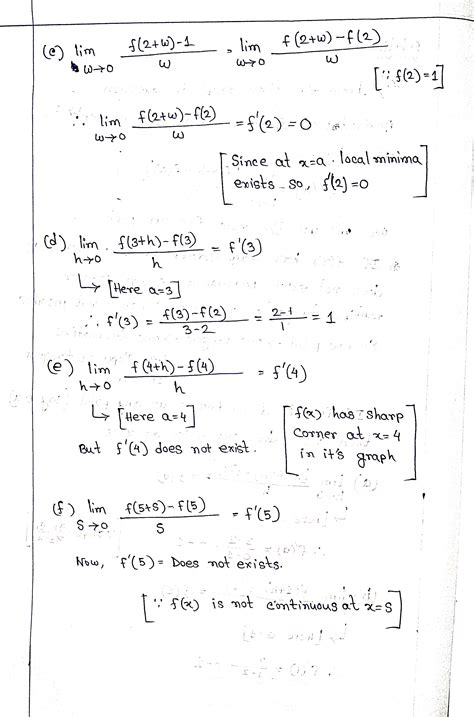 (c) lim w→0 f(2+w)-1 / w = lim w→0 f(2+w)-f(2) / w
[∵ f(2)=1]
∴ lim w→0 f(2+w)-f(2) / w = f'(2) = 0
[Since at x=a local minima
exists so, f'(2)=0]
(d) lim h→0 f(3+h)-f(3) / h = f'(3)
↳ [Here a=3]
∴ f'(3) = f(3)-f(2) / 3-2 = 2-1 / 1 = 1
(e) lim h→0 f(4+h)-f(4) / h = f'(4)
↳ [Here a=4]
But f'(4) does not exist.
[f(x) has sharp
corner at x=4
in it's graph]
(f) lim S→0 f(5+S)-f(5) / S = f'(5)
Now, f'(5) = Does not exists.
[∵ f(x) is not continuous at x=5]